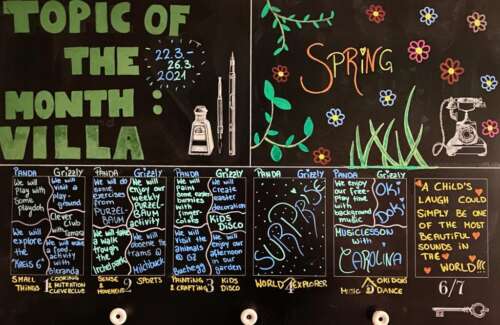 TOPIC OF
THE
MONTH:
VILLA
22.3.-
26.3.
2021
SPRING
PANDA
We will
play with
some
playdoh
We will
explore
the
"Kreis 6"
Grizzly
We will
visit a
play
ground
Clever
Club
with
We will
a food
activity
with
SMALL
THINGS
1
COOKING
& NUTRITION
CLEVERCLUB
PANDA
We will do
some
exercises
from
PURZEL-
BAUM
We will
take a
walk
through
the
Irchelpark
Grizzly
We will
enjoy our
weekly
PURZEL-
BAUM
activity
We will
observe the
trams @
SENSE &
MOVEMENT
2
SPORTS
PANDA
We will
Paint
some easter
bunnies
with
finger
color
We will
Visit the
animals
@ GZ
Buchegg
Grizzly
We will
create
easter
decoration
KIDS
DISCO
We will
enjoy our
afternoon
in our
garden
PAINTING
& CRAFTING
3
KIDS
DISCO
PANDA
Grizzly
SURPRISE
WORLD 4 EXPLORER
PANDA
We will
enjoy our
free
play time
with
background
music
Grizzly
OKI
DOKI
MUSICLESSON
with
CAROLINA
MUSIC
5
OKIDOKI
DANCE
A CHILD'S
LAUGH COULD
SIMPLY BE ONE
OF THE MOST
BEAUTIFUL
SOUNDS IN
THE
WORLD!!!
6/7